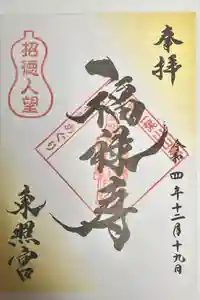 奉拝
令和四年十二月十九日
福禄寿
東照宮
招徳人望